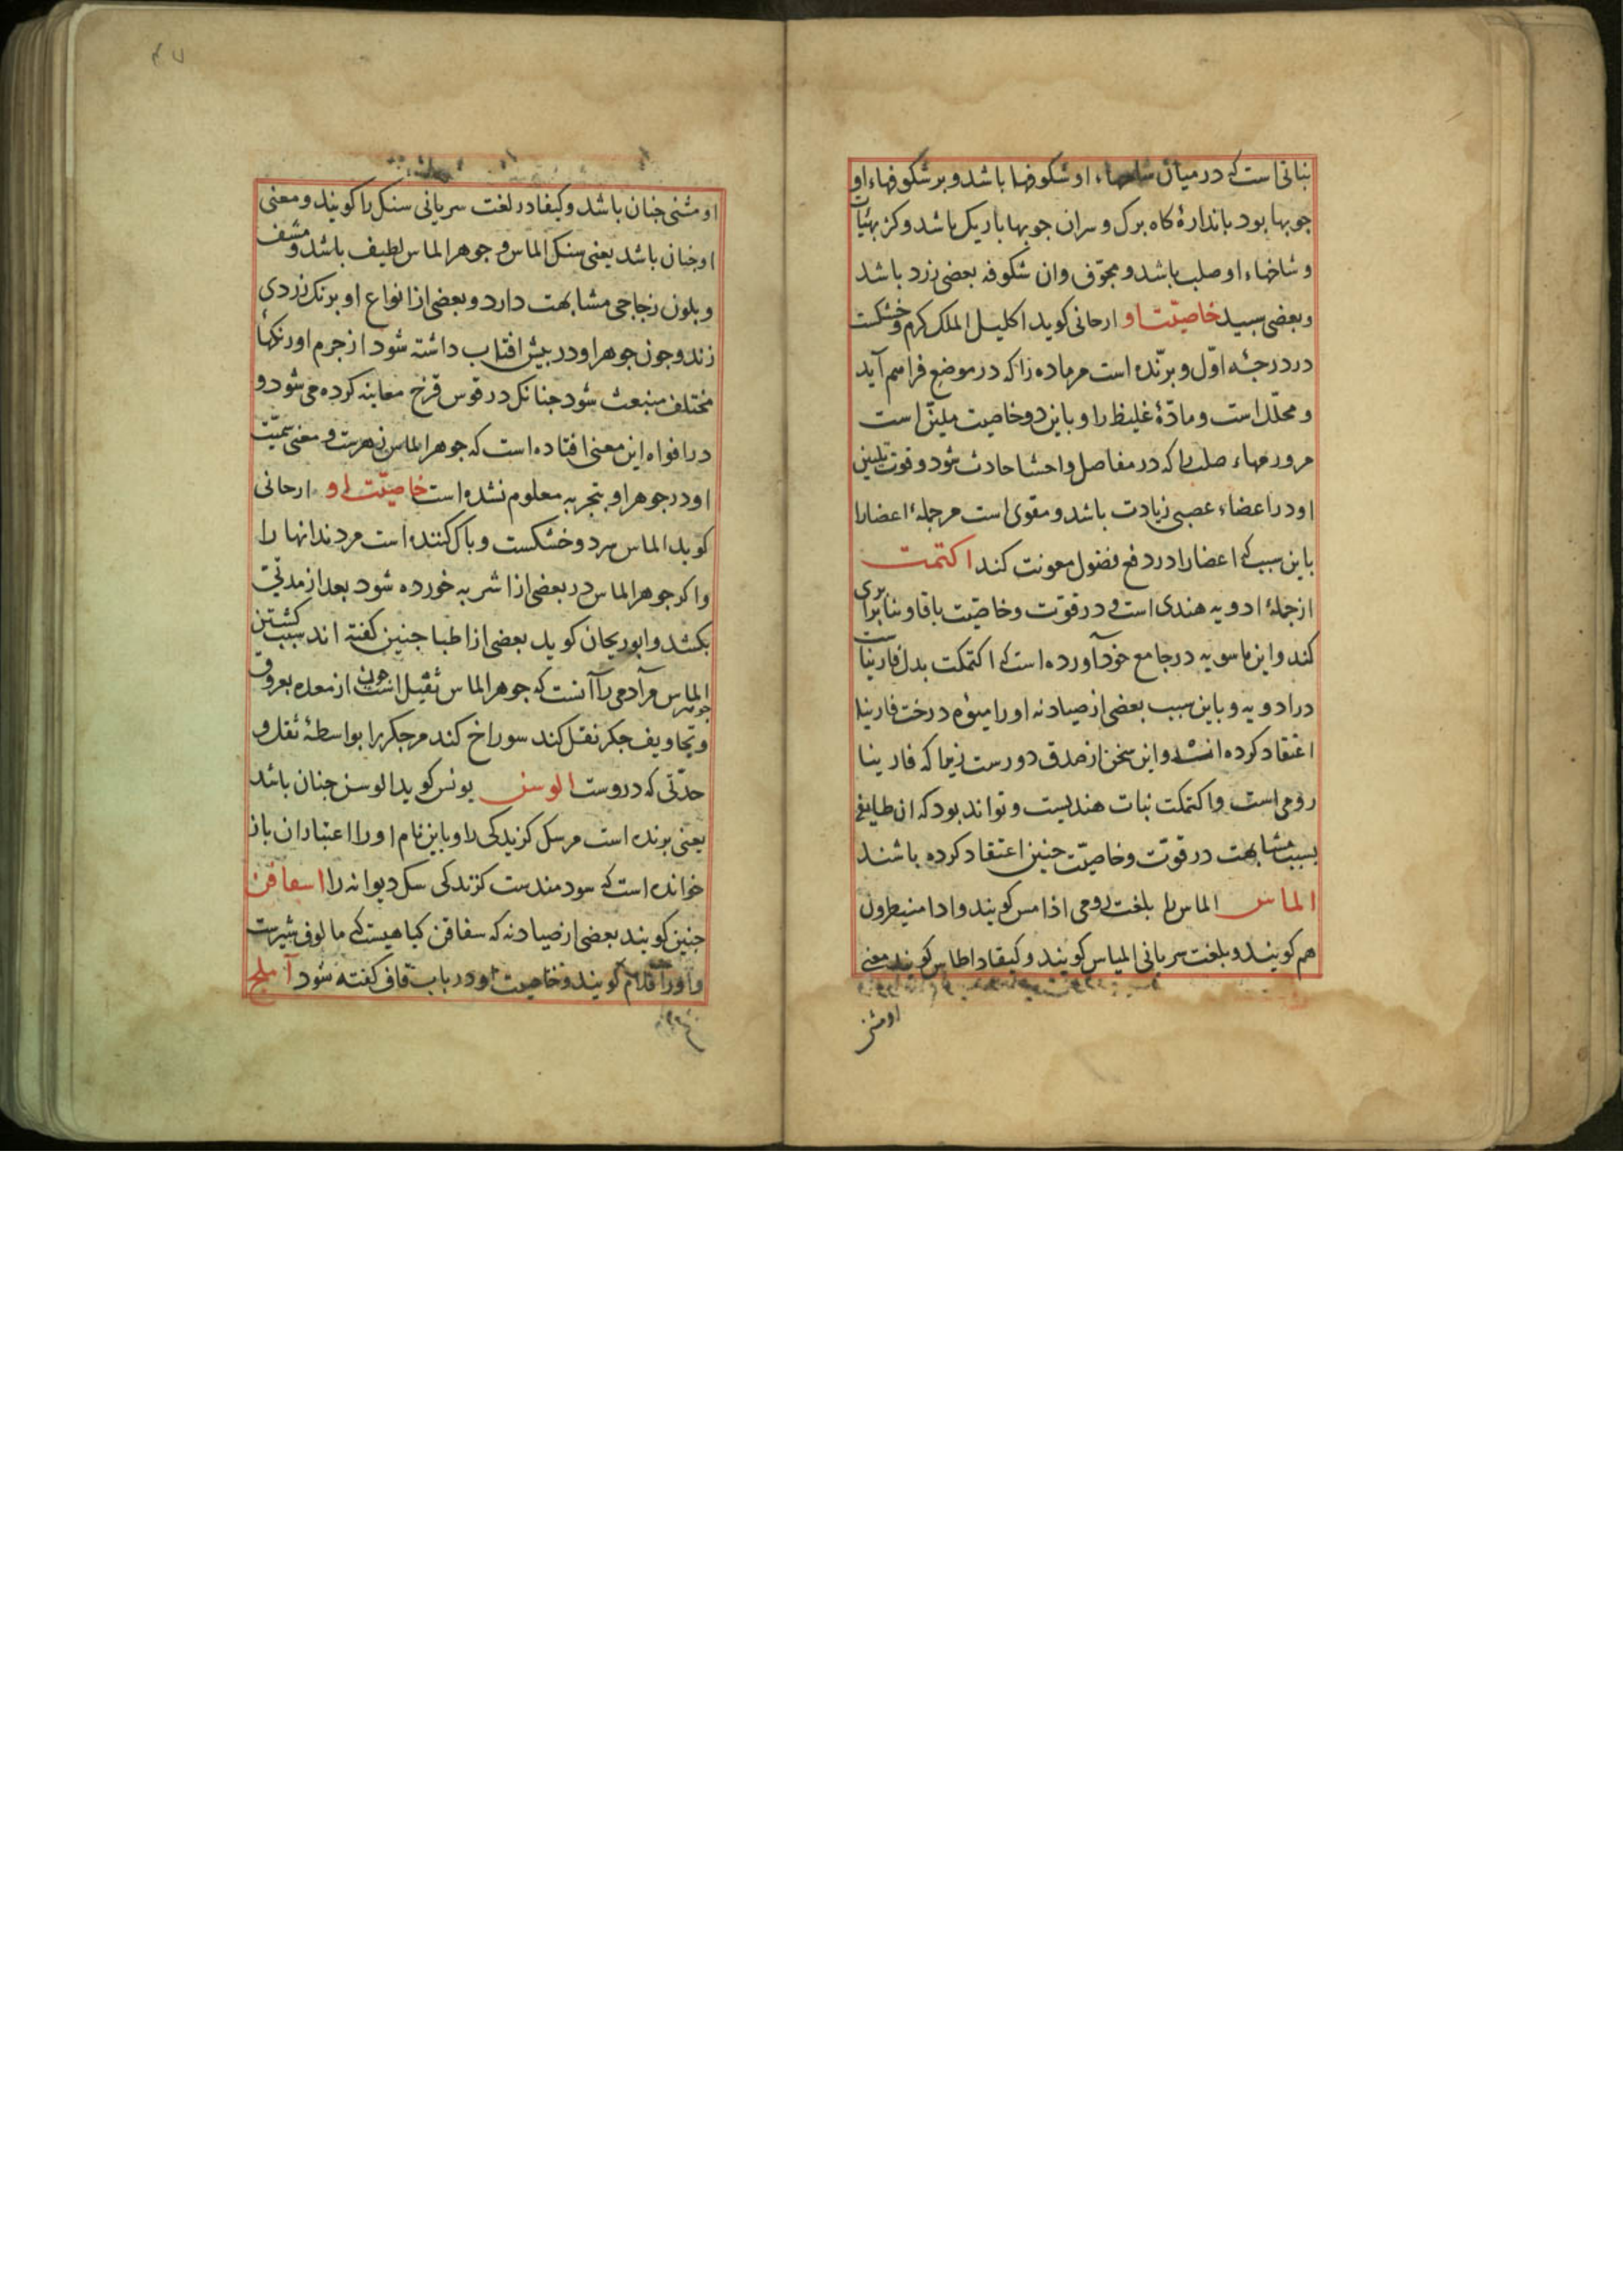 نباتی است که در میان شاخهاء او شکوفها باشد و بر شکوفهاء او
جوبها بود باندازهٔ کاه برک و سران جوبها باریک باشد و کز بهیأت
و شاخهاء او صلب باشد و مجوّف وان شکوفه بعضی زرد باشد
و بعضی سبید خاصیّت او ارحانی کوید اکلیل الملک کرم و خشکست
در درجهٔ اوّل و برّنده است مر ماده را که در موضع فراهم آید
و محلّل است و مادّهٔ غلیظ را و باین دو خاصیت ملیّن است
مر ورمهاء صلب را که در مفاصل و احشا حادث شود و قوت تلیین
او در اعضاء عصبی زیادت باشد و مقوی است مر جملهٔ اعضا را
باین سبب که اعضا را در دفع فضول معونت کند اکتمت
از جملهٔ ادویه هندی است و در قوّت و خاصیّت باقاوینا برابری
کند و ابن ماسویه در جامع خود آورده است که اکتمکت بدل فارینا ست
در ادویه و باین سبب بعضی از صیادنه او را میوهٔ درخت فارینا
اعتقاد کرده اند و این سخن از صدق دورست زیرا که فارینا
رومی است و اکتمکت نبات هندیست و تواند بود که ان طایفه
بسبب مشابهت در قوّت و خاصیّت جنین اعتقاد کرده باشند
الماس الماس را بلغت رومی اذامس کویند و ادامنیطرون
هم کویند و بلغت سریانی المیاس کویند و کیفاد اطاس کویند معنی
او مثنی
او مثنی جنان باشد و کیفا در لغت سریانی سنک را کویند و معنی
او جنان باشد یعنی سنک الماس و جوهر الماس لطیف باشد و مشف
و بلون زجاجی مشابهت دارد و بعضی از انواع او برنک زردی
زند و جون جوهر او در بیش افتاب داشته شود از جرم او رنکهاء
مختلف منبعث شود جنانک در قوس قزح معاینه کرده می شود و
در افواه این معنی افتاده است که جوهر الماس زهرست و معنی سمیّت
او در جوهر او بتجربه معلوم نشده است خاصیّت او ارحانی
کوید الماس سرد و خشکست و باک کننده است مر دندانها را
و اکر جوهر الماس در بعضی از اشربه خورده شود بعد از مدتی
بکشد و ابوریحان کوید بعضی از اطبا جنین کفته اند سبب کشتن
الماس مر آدمی را آنست که جوهر الماس ثقیل است جون جوهر از معده بعروق
و تجاویف جکر نقل کند سوراخ کند مر جکر را بواسطهٔ ثقل و
حدّتی که دروست الوسن یونس کوید الوسن جنان باشد
یعنی برنده است مر سک کزیدکی را و باین نام او را اعتبار ان باز
خوانده است که سودمندست کزندکی سک دیوانه را اسفاقن
جنین کویند بعضی از صیادنه که سفاقن کیاهیست که مالوف شیرست
و او را اقدام کویند و خاصیت او در باب قاف کفته شود آملج